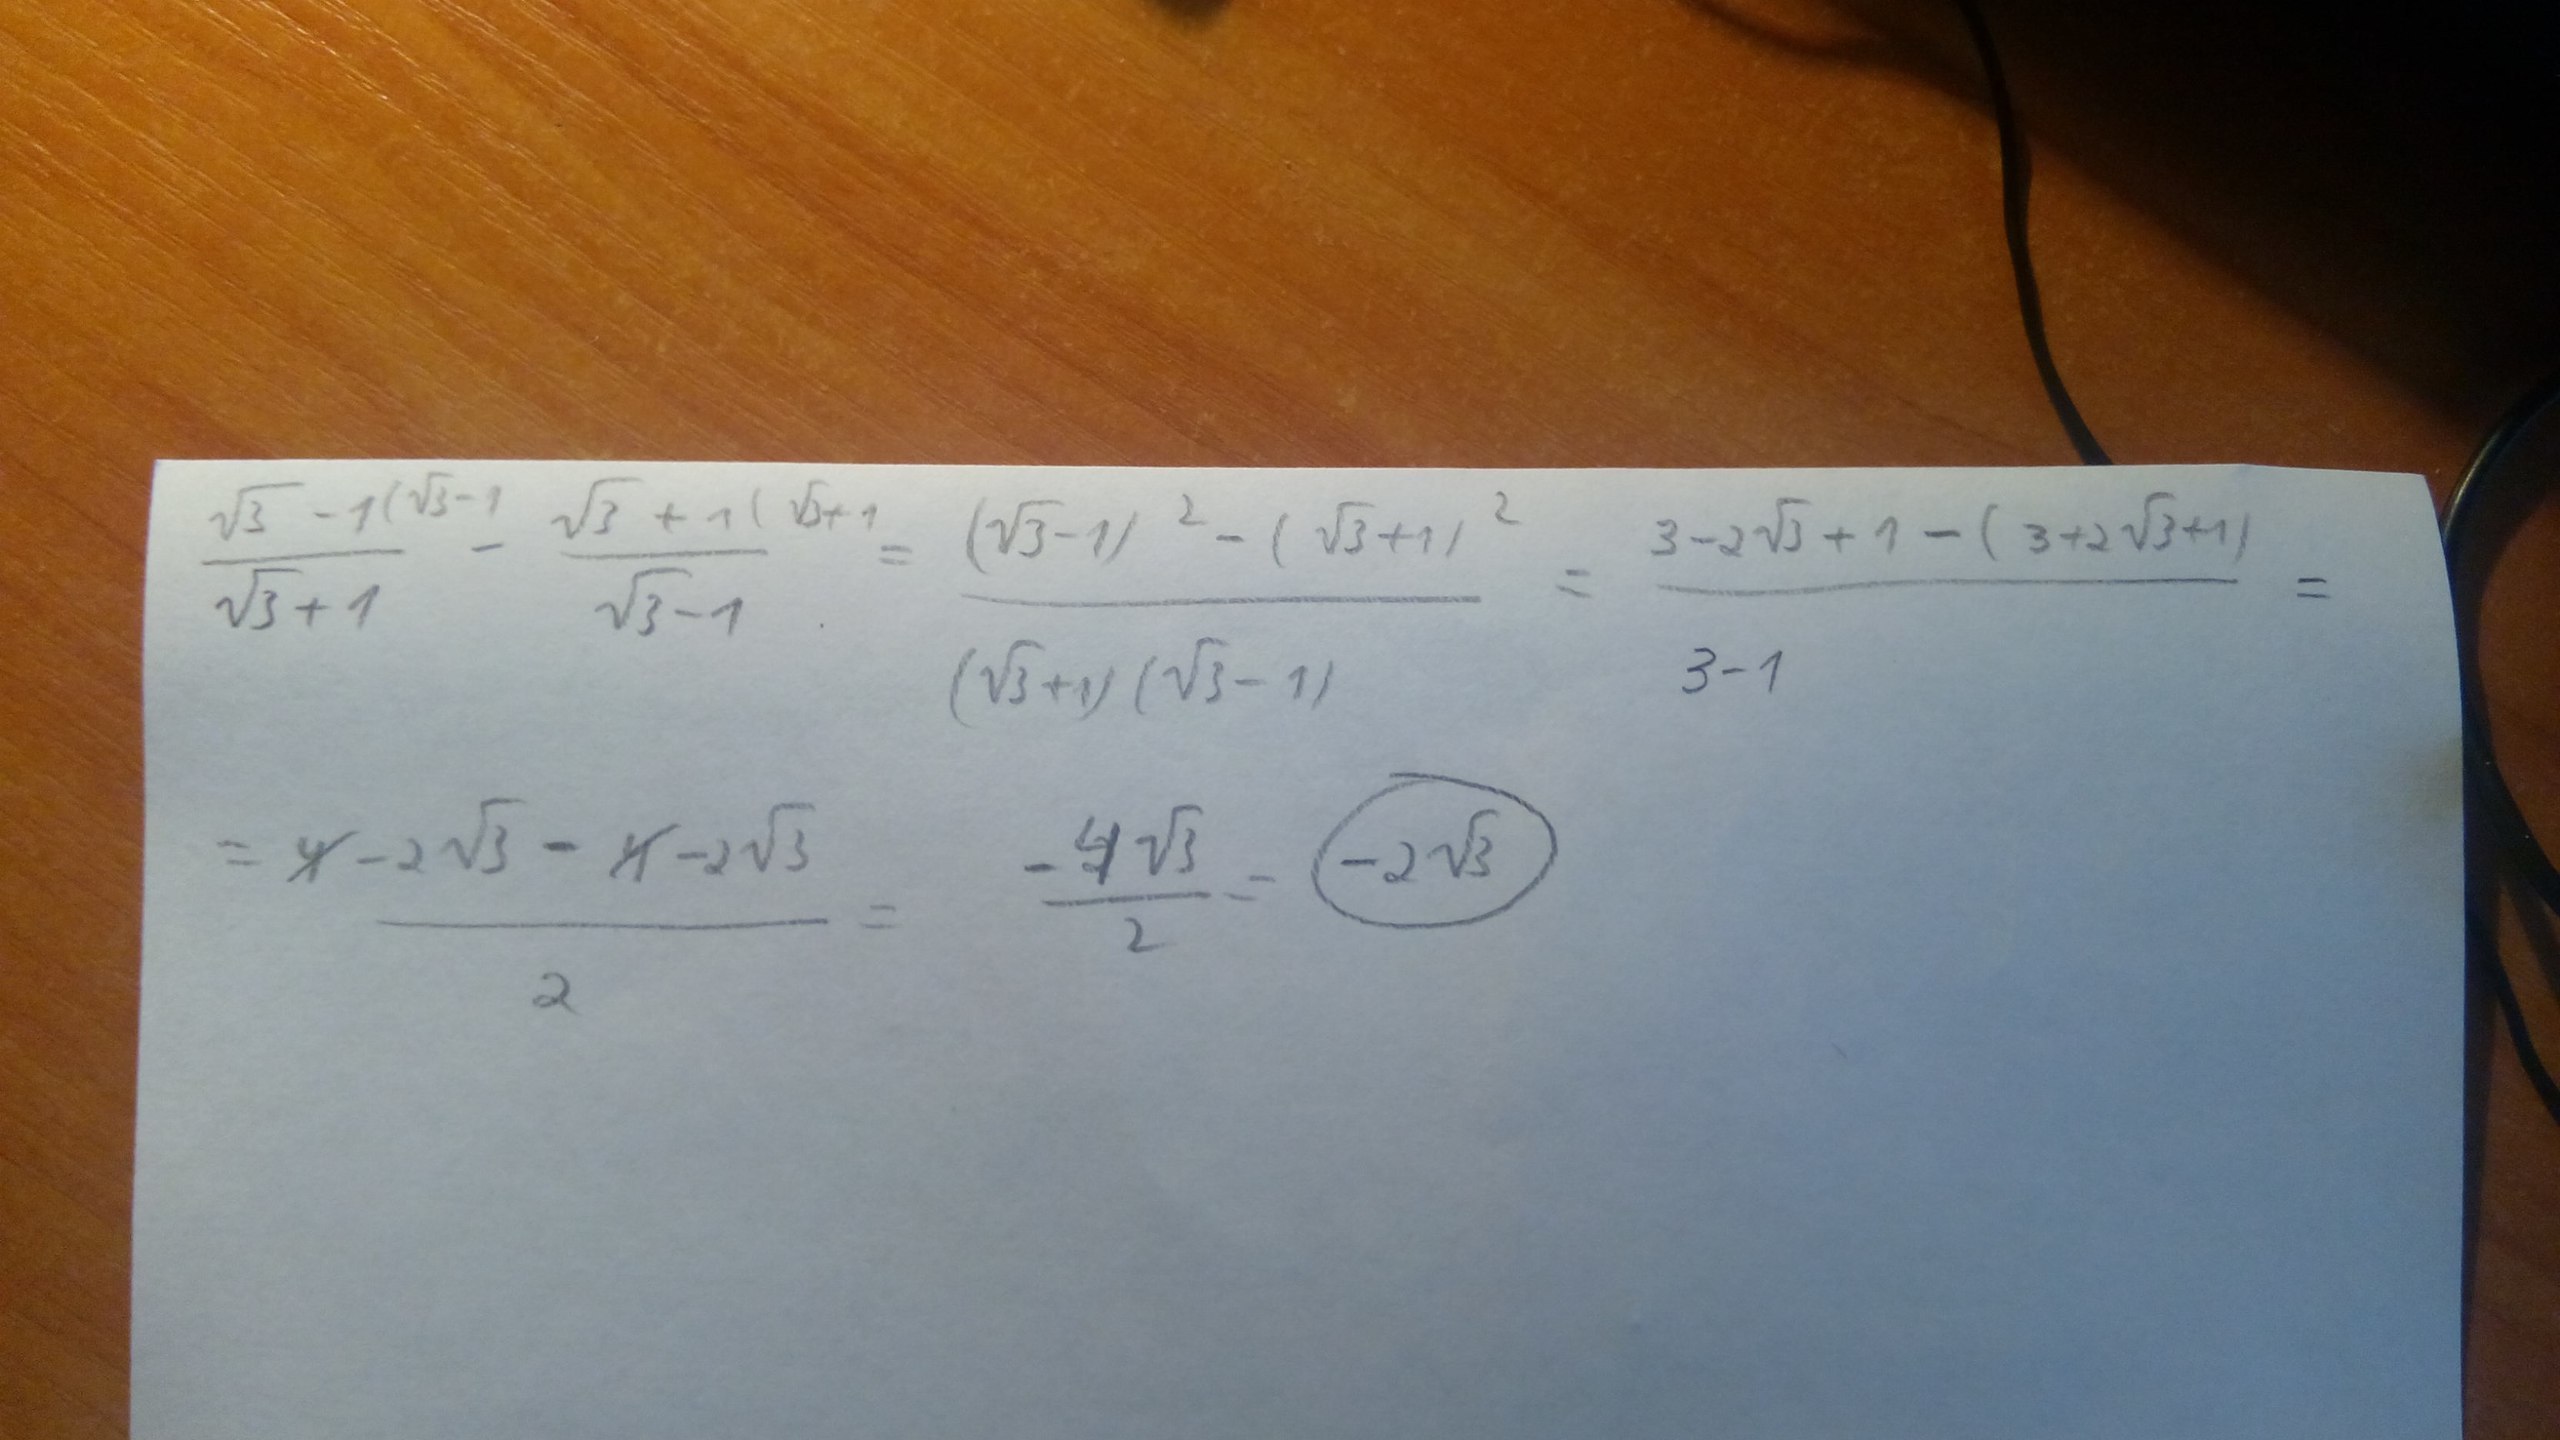 (√3 - 1 (√3-1)/(√3+1) - (√3 + 1 (√3+1)/(√3-1) = ((√3-1)² - (√3+1)²)/((√3+1)(√3-1)) = (3-2√3+1-(3+2√3+1))/(3-1) =
= (4-2√3-4-2√3)/2 = (-4√3)/2 = -2√3